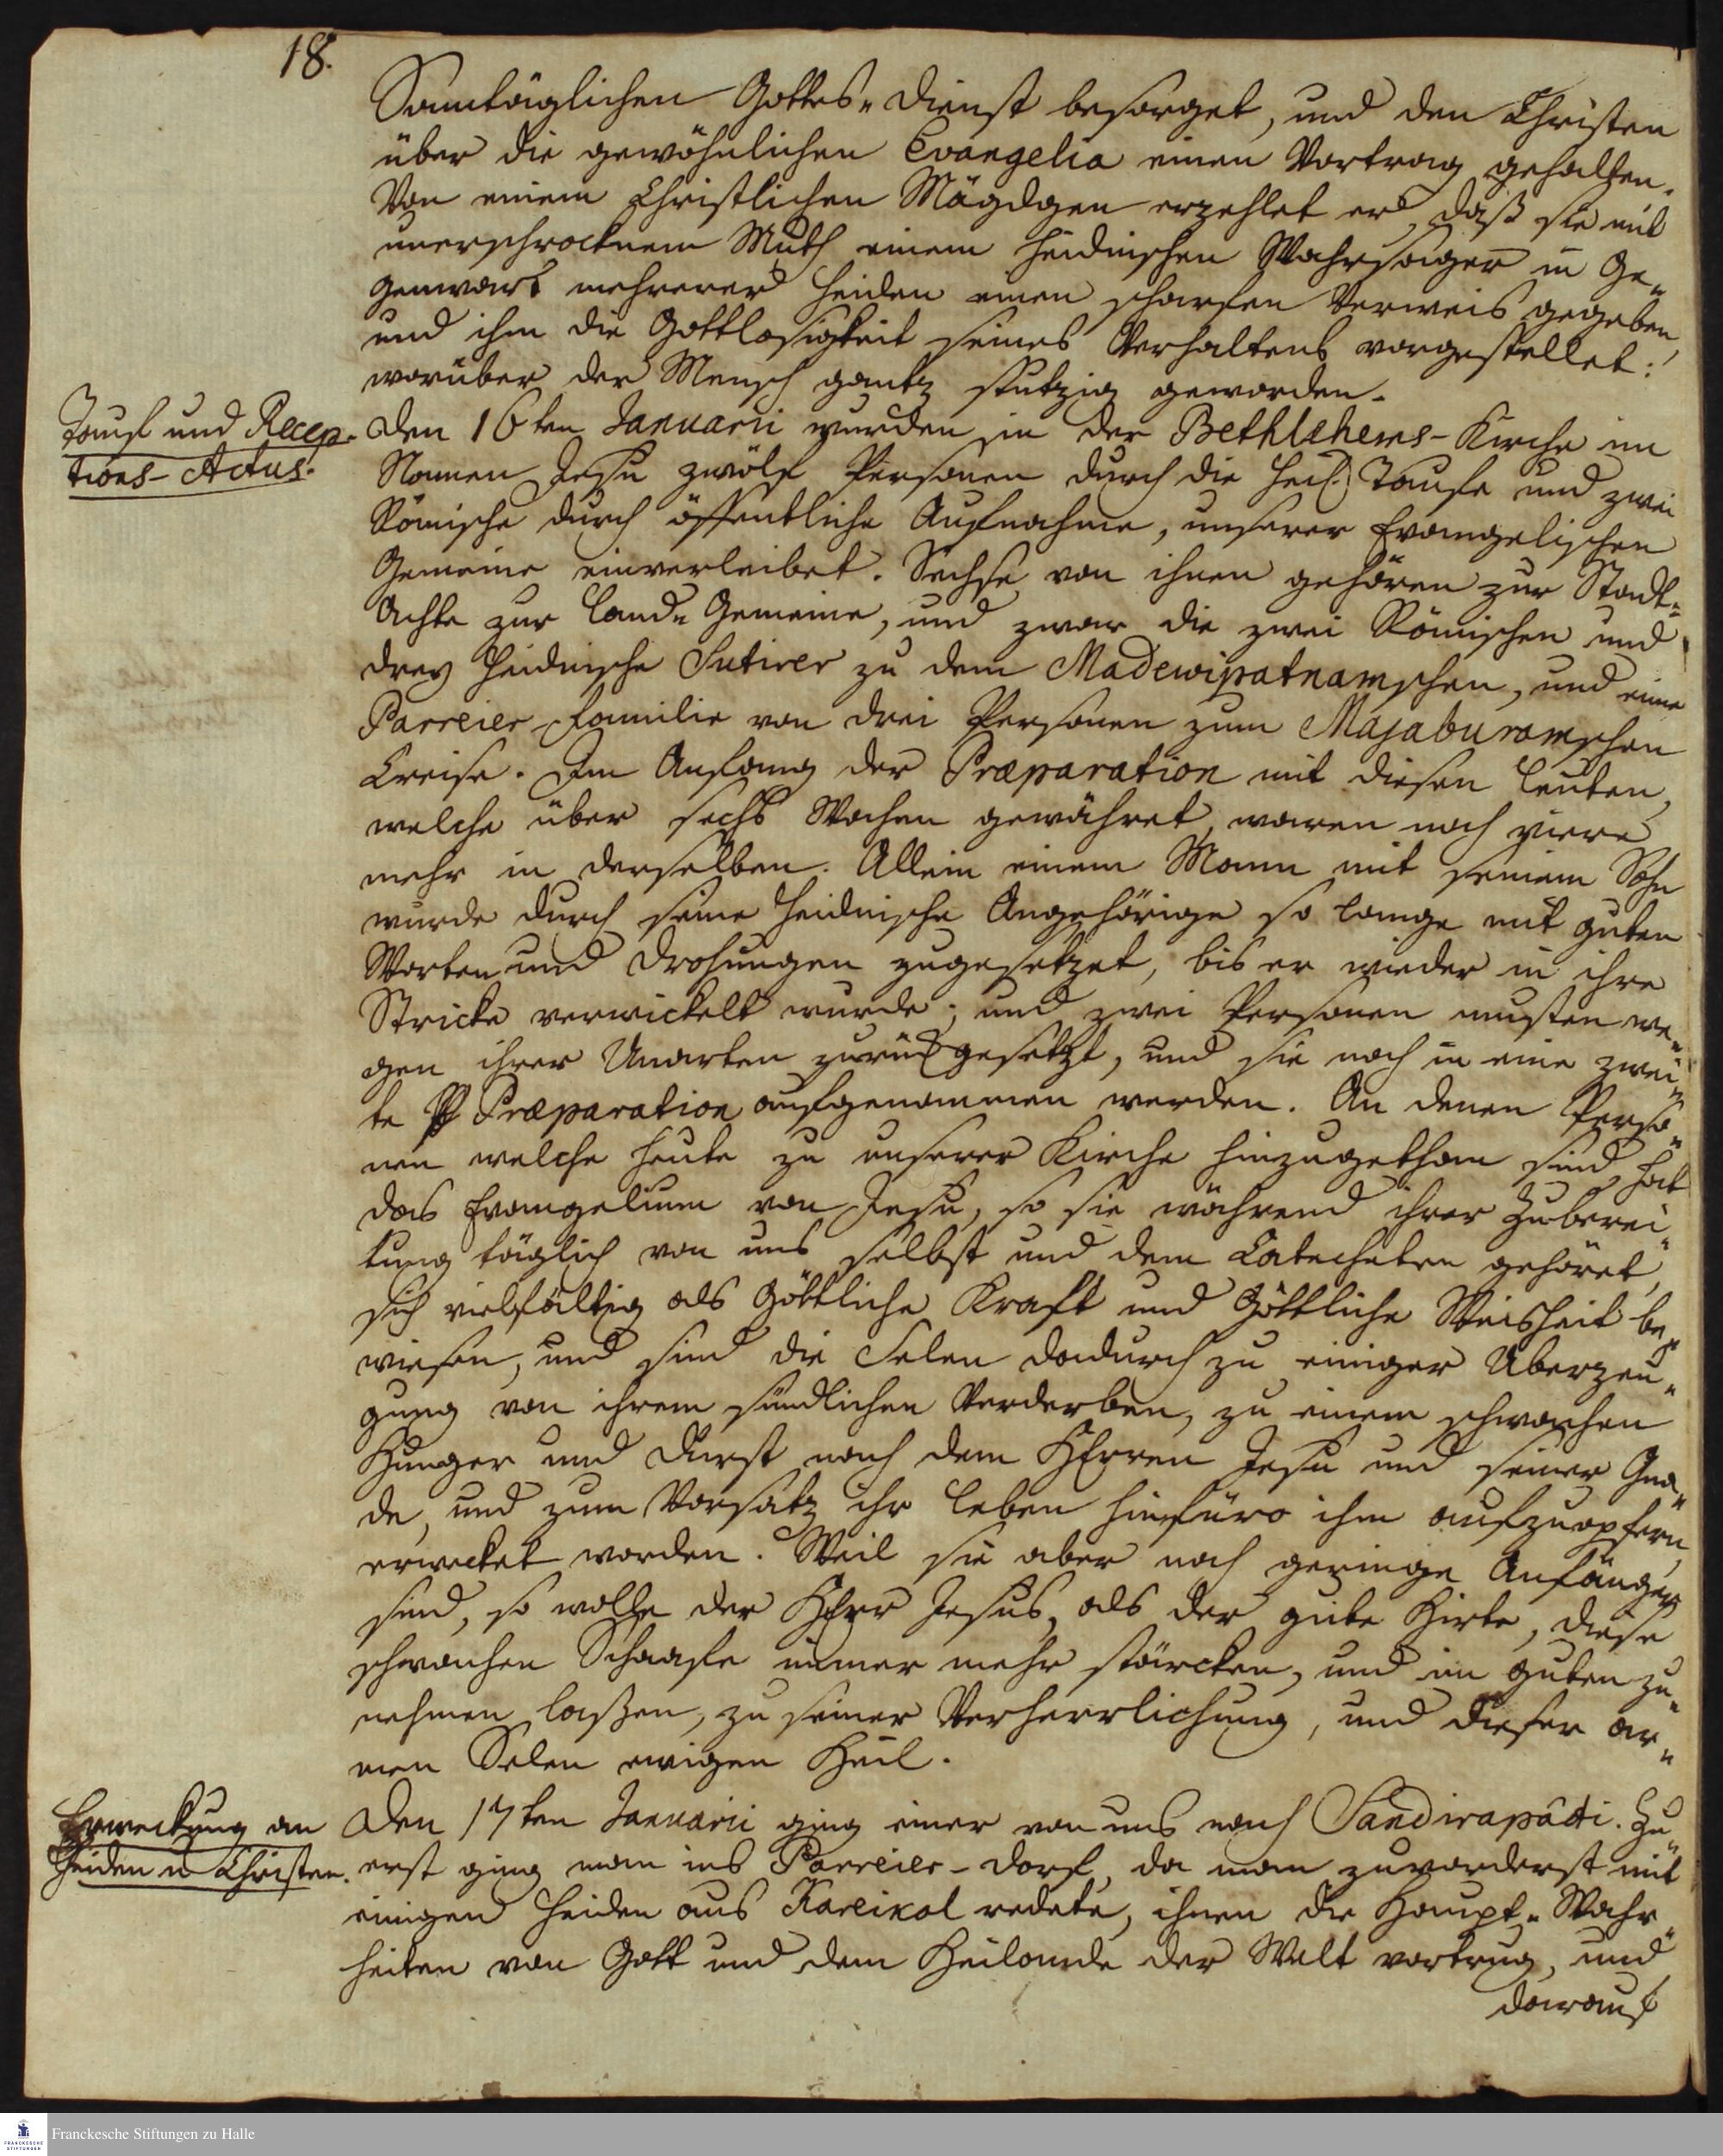 18.
Sonntäglichen Gottes-Dienst besorget, und den Christen
über die gewöhnlichen Evangelia einen Vortrag gehalten.
Von einem Christlichen Mägdgen erzehlet er, daß sie mit
unerschrocknem Muth einem heidnischen Wahrsager in Ge-
genwart mehrerer Heiden einen scharfen Verweis gegeben,
und ihm die Gottlosigkeit seines Verhaltens vorgestellet:
worüber der Mensch gantz stutzig geworden.
Tauf und Recep-
tions-Actus.
Den 16ten Januarii wurden in der Bethlehems-Kirche im
Namen Jesu zwölf Personen durch die Heil. Taufe und zwei
Römische durch öffentliche Aufnahme, unserer Evangelischen
Gemeine einverleibet. Sechse von ihnen gehören zur Stadt-
Achte zur Land-Gemeine, und zwar die zwei Römischen und
drey heidnische Sutirer zu dem Madewipatnamschen, und eine
Parreier-Familie von drei Personen zum Majaburamschen
Creise. Im Anfang der Præparation mit diesen Leuten,
welche über sechs Wochen gewähret, waren noch viere
mehr in derselben. Allein einem Mann mit seinem Sohn
wurde durch seine heidnische Angehörige so lange mit guten
Worten und Drohungen zugesetzet, bis er wieder in ihre
Stricke verwickelt wurde; und zwei Personen musten we-
gen ihrer Unarten zurückgesetzt, und sie noch in eine zwei-
te Præparation aufgenommen werden. An denen Perso-
nen welche heute zu unserer Kirche hinzugethan sind, hat
das Evangelium von Jesu, so sie während ihrer Zuberei-
tung täglich von uns selbst und dem Catecheten gehöret,
sich vielfältig als Göttliche Kraft und Göttliche Weisheit be-
wiesen, und sind die Selen dadurch zu einiger Uberzeu-
gung von ihrem sündlichen Verderben, zu einem schwachen
Hunger und Durst nach dem HErren Jesu und seiner Gna-
de, und zum Vorsatz ihr Leben hinfüro ihm aufzuopfern,
erwecket worden. Weil sie aber noch geringe Anfänger
sind, so wolle der HErr Jesus, als der gute Hirte, diese
schwachen Schaafe immer mehr stärcken, und im guten zu-
nehmen laßen, zu seiner Verherrlichung, und dieser ar-
men Selen ewigen Heil.
Erweckung an
Heiden u Christen.
Den 17ten Januarii ging einer von uns nach Sandirapâdi. Zu-
erst ging man ins Parreier-Dorf, da man zuvorderst mit
einigen Heiden aus Kareikal redete, ihnen die Haupt-Wahr-
heiten von Gott und dem Heilande der Welt vortrug, und
darauf
Franckesche Stiftungen zu Halle
FRANCKESCHE
STIFTUNGEN